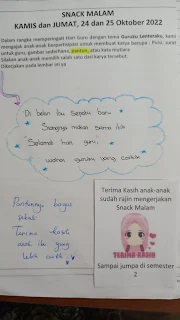 SNACK MALAM
KAMIS dan JUMAT, 24 dan 25 Oktober 2022
Dalam rangka memperingati Hari Guru dengan tema Guruku Lenteraku, kami
mengajak anak-anak berpartisipasi untuk membuat karya berupa : Puisi, surat
untuk guru, gambar sederhana, pantun, atau kata mutiara
Silakan anak-anak memilih salah satu dari karya tersebut.
Dikerjakan pada lembar ini ya
Di bulan itu sepatu baru
Siangnya makan sama
Selamat hari guru,
guruku yang cantik
Pantunnya bagus
sekali
Terima kasih
anak ibu yang
lebih cantik
Terima Kasih anak-anak
sudah rajin mengerjakan
Snack Malam
TERIMA KASIH
Sampai jumpa di semester
2